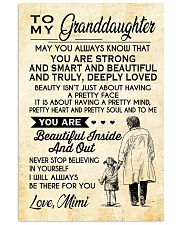 TO
MY Granddaughter
MAY YOU ALWAYS KNOW THAT
YOU ARE STRONG
AND SMART AND BEAUTIFUL
AND TRULY, DEEPLY LOVED
BEAUTY ISN'T JUST ABOUT HAVING
A PRETTY FACE
IT IS ABOUT HAVING A PRETTY MIND,
PRETTY HEART AND PRETTY SOUL AND TO ME
YOU ARE
Beautiful Inside
And Out
NEVER STOP BELIEVING
IN YOURSELF
I WILL ALWAYS
BE THERE FOR YOU
Love, Mimi